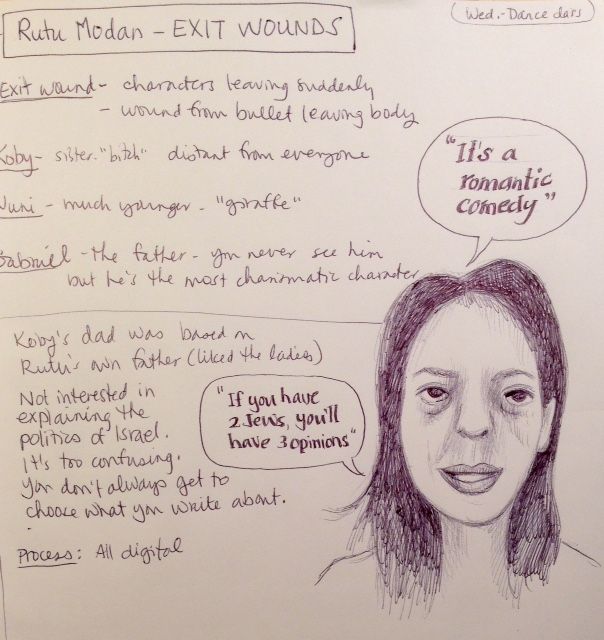 Rutu Modan - EXIT WOUNDS
Wed. - Dance dairs
Exit wound - characters leaving suddenly
- wound from bullet leaving body
Koby - sister - "bitch" distant from everyone
Nuni - much younger - "giraffe"
Gabriel - the father - you never see him
but he's the most charismatic character
"It's a
romantic
comedy"
Koby's dad was based on
Rutu's own father (liked the ladies)
Not interested in
explaining the
politics of Israel.
It's too confusing.
You don't always get to
choose what you write about.
"If you have
2 Jews, you'll
have 3 opinions"
Process: All digital